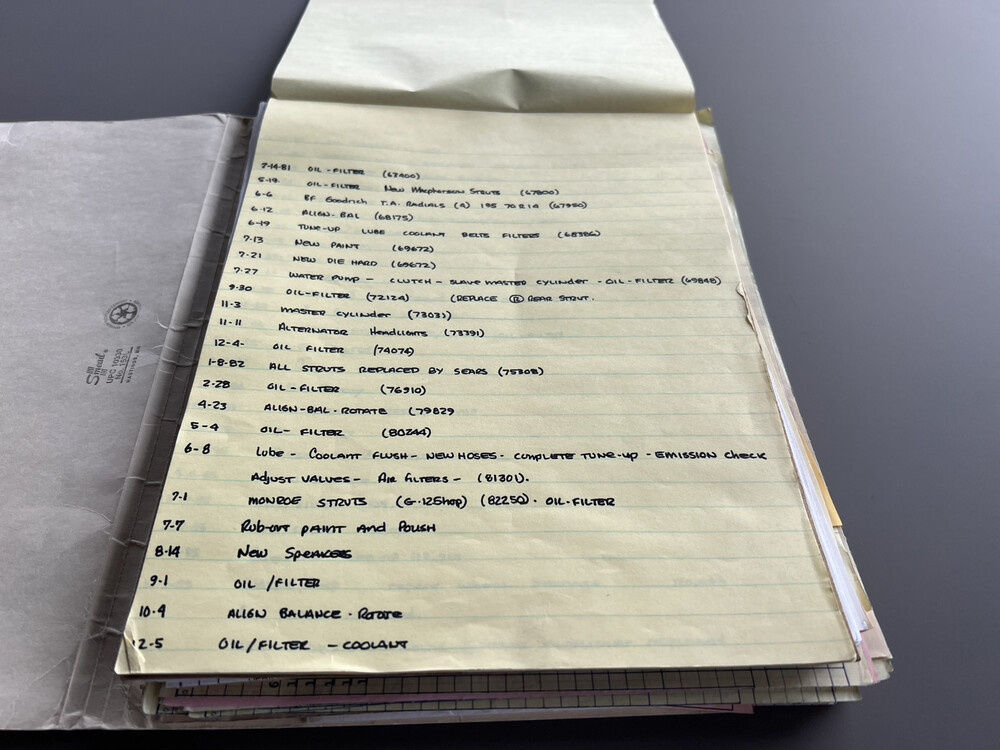 7-14-81 OIL-FILTER (63400)
5-19. OIL-FILTER New Macpherson Struts (67800)
6-6 BF Goodrich T.A. RADIALS (4) 195 70 R 14 (67950)
6-12 ALIGN-BAL (68175)
6-19 TUNE-UP LUBE COOLANT BELTS FILTERS (68386)
7-13 NEW PAINT (69672)
7-21 NEW DIE HARD (69672)
7-27 WATER PUMP - CLUTCH - SLAVE MASTER CYLINDER - OIL-FILTER (69848)
9-30 OIL-FILTER (72124) (REPLACE Ⓡ REAR STRUT.
11-3 MASTER CYLINDER (73031)
11-11 ALTERNATOR HeadLIGHTS (73391)
12-4- OIL FILTER (74074)
1-8-82 ALL STRUTS REPLACED BY SEARS (75308)
2-28 OIL-FILTER (76910)
4-23 ALIGN-BAL-ROTATE (79829
5-4 OIL-FILTER (80244)
6-8 Lube - COOLANT FLUSH - NEW HOSES - COMPLETE TUNE-UP - EMISSION CHECK
ADJUST VALVES - AIR FILTERS - (81301).
7-1 MONROE STRUTS (G-12Shop) (82250) - OIL-FILTER
7-7 RUB-OUT PAINT AND POLISH
8-14 New Speakers
9-1 OIL /FILTER
10-9 ALIGN BALANCE - ROTATE
12-5 OIL/FILTER - COOLANT
Smead®
UPC 10330
No. 153C
HASTINGS, MN